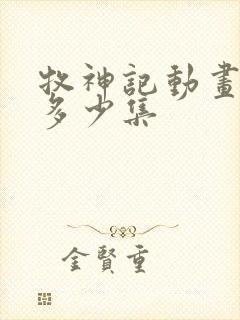 牧神記動畫
多少集
金賢重